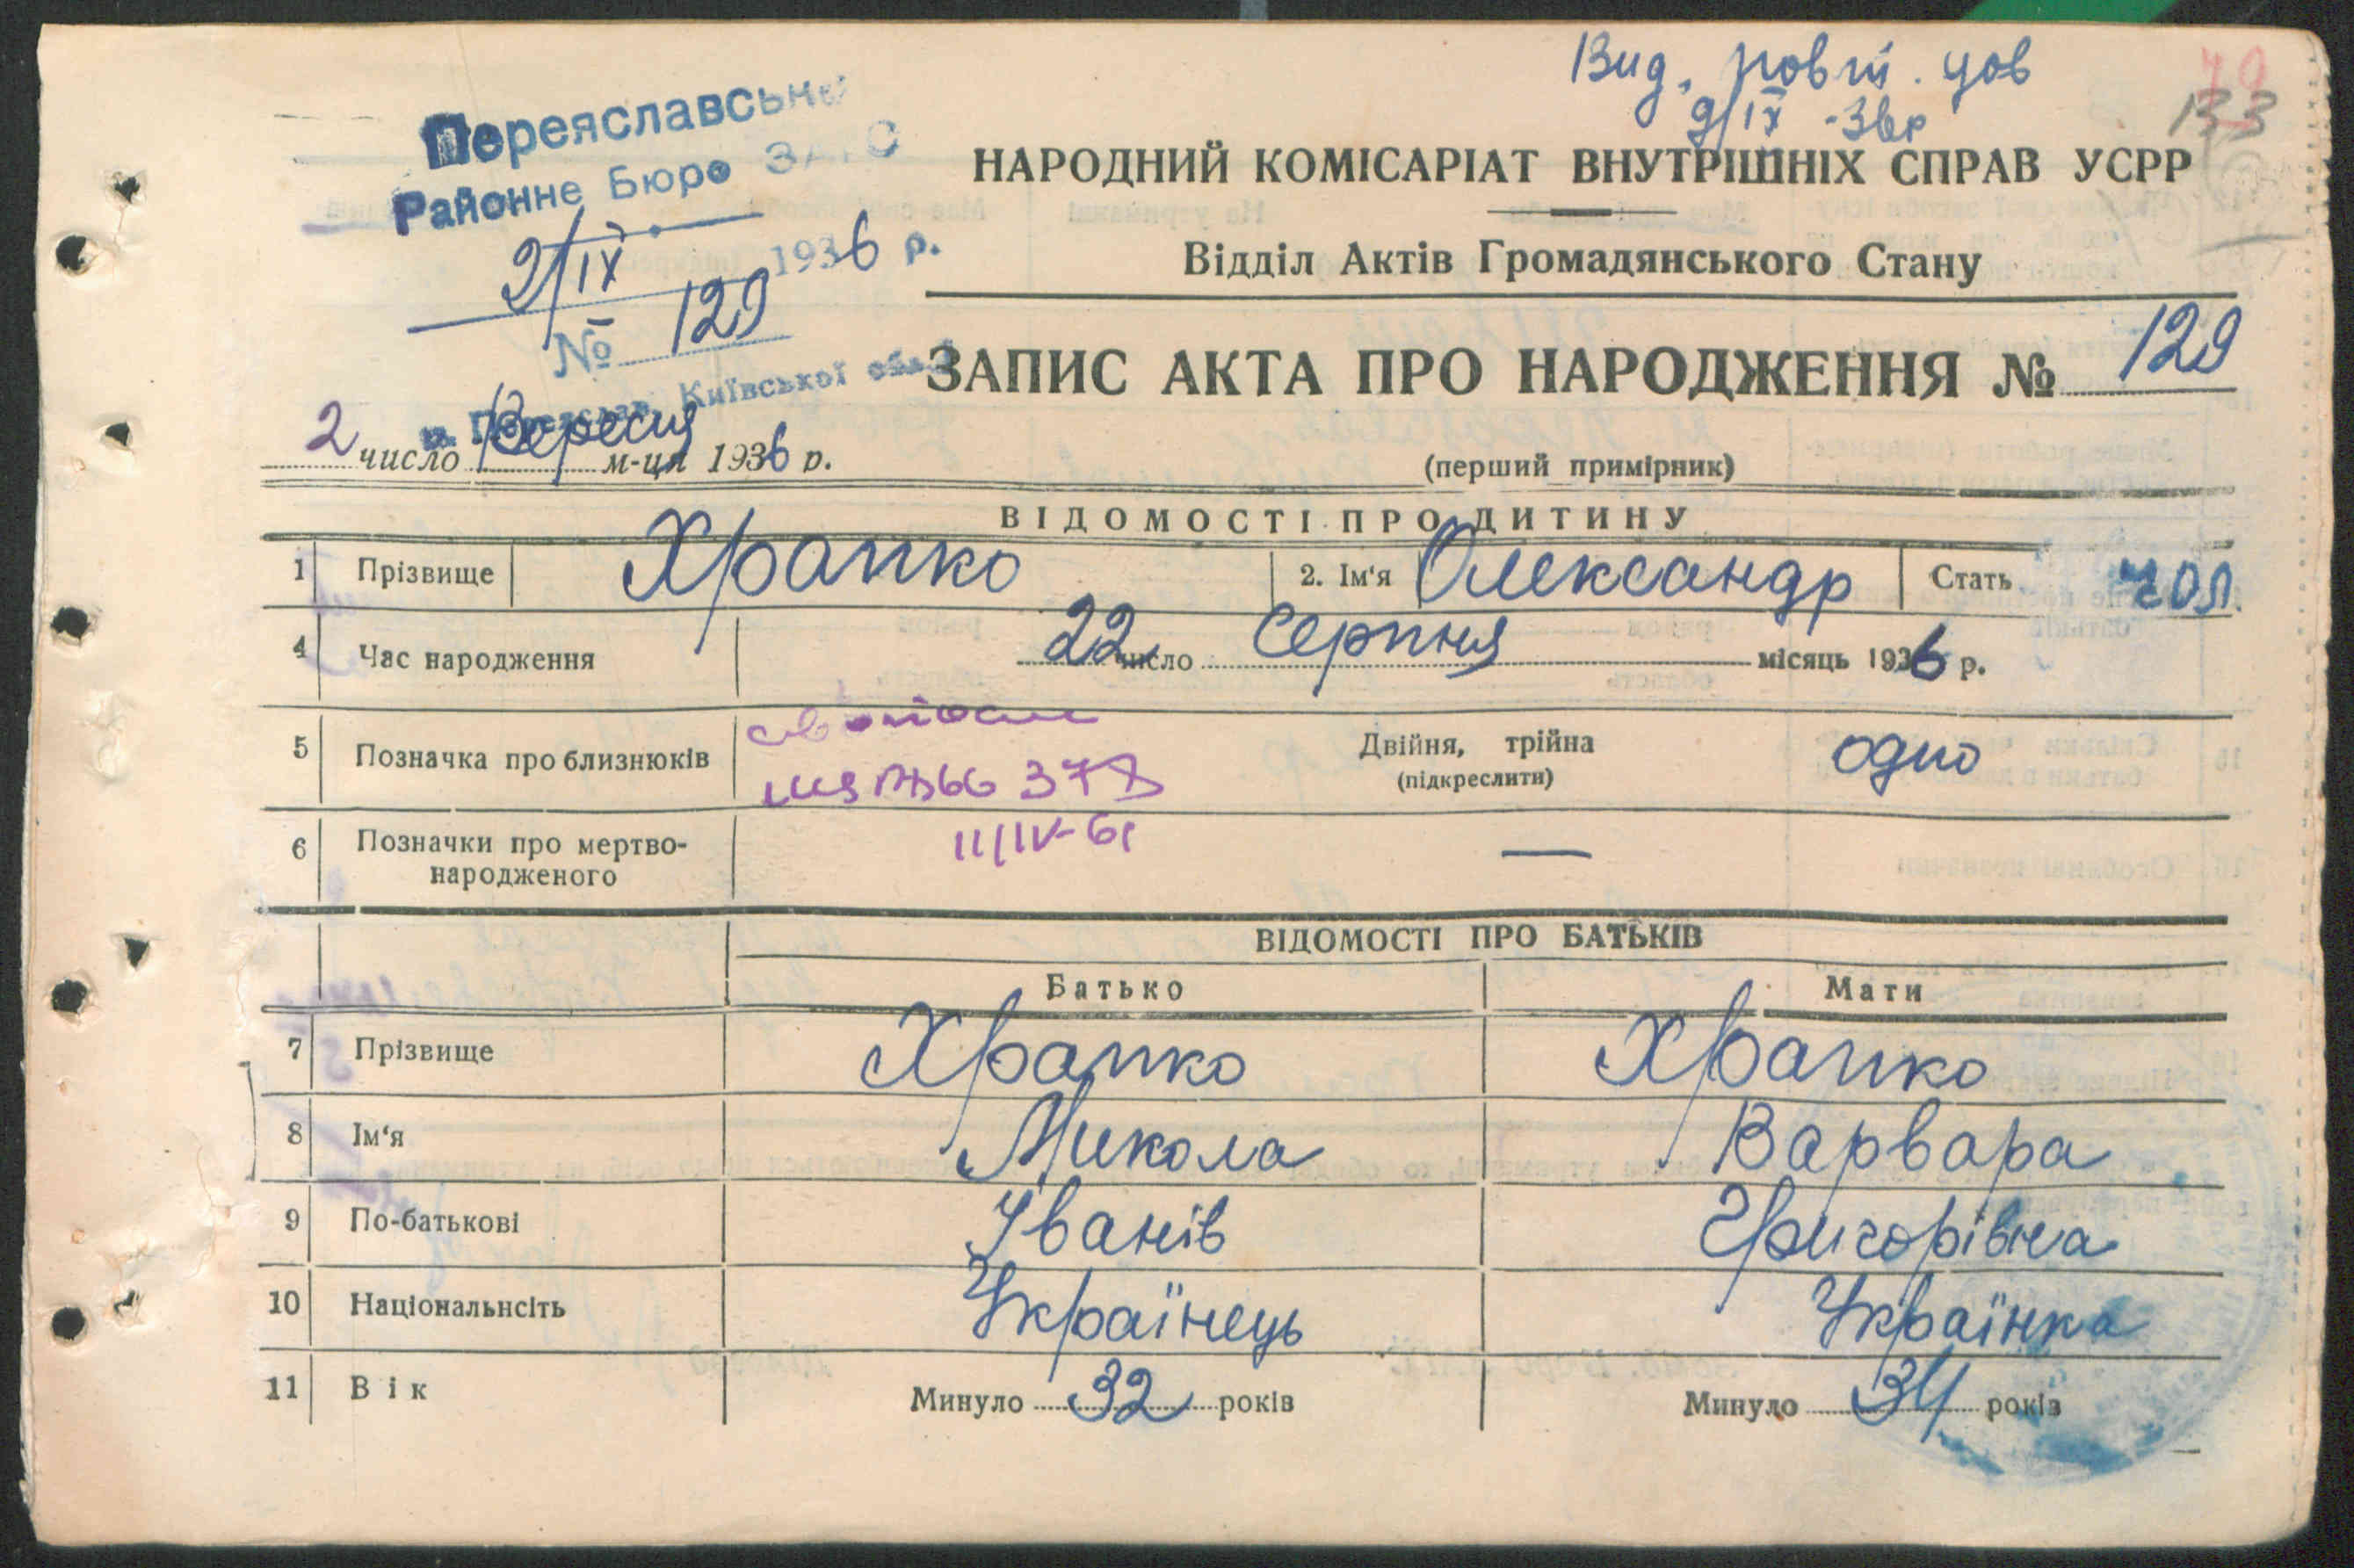 Вид. повт. 
9/IX -36р
79
133
Переяславське
Районне Бюро ЗАГС
2/IX 1936 р.
№ 129
м. Переяслав, Київської обл.
НАРОДНИЙ КОМІСАРІАТ ВНУТРІШНІХ СПРАВ УСРР
Відділ Актів Громадянського Стану
ЗАПИС АКТА ПРО НАРОДЖЕННЯ № 129
2 число Вересня м-ця 1936 р.
(перший примірник)
ВІДОМОСТІ ПРО ДИТИНУ
1 Прізвище Храпко 2. Ім'я Олександр Стать чол.
4 Час народження 22 число Серпня місяць 1936 р.
5 Позначка про близнюків Двійня, трійна одно
(підкреслити)
377
11/IV-61
6 Позначки про мертво-
народженого —
ВІДОМОСТІ ПРО БАТЬКІВ
Батько Мати
7 Прізвище Храпко Храпко
8 Ім'я Микола Варвара
9 По-батькові Іванів Григорівна
10 Національнсіть Українець Українка
11 Вік Минуло 32 років Минуло 34 років